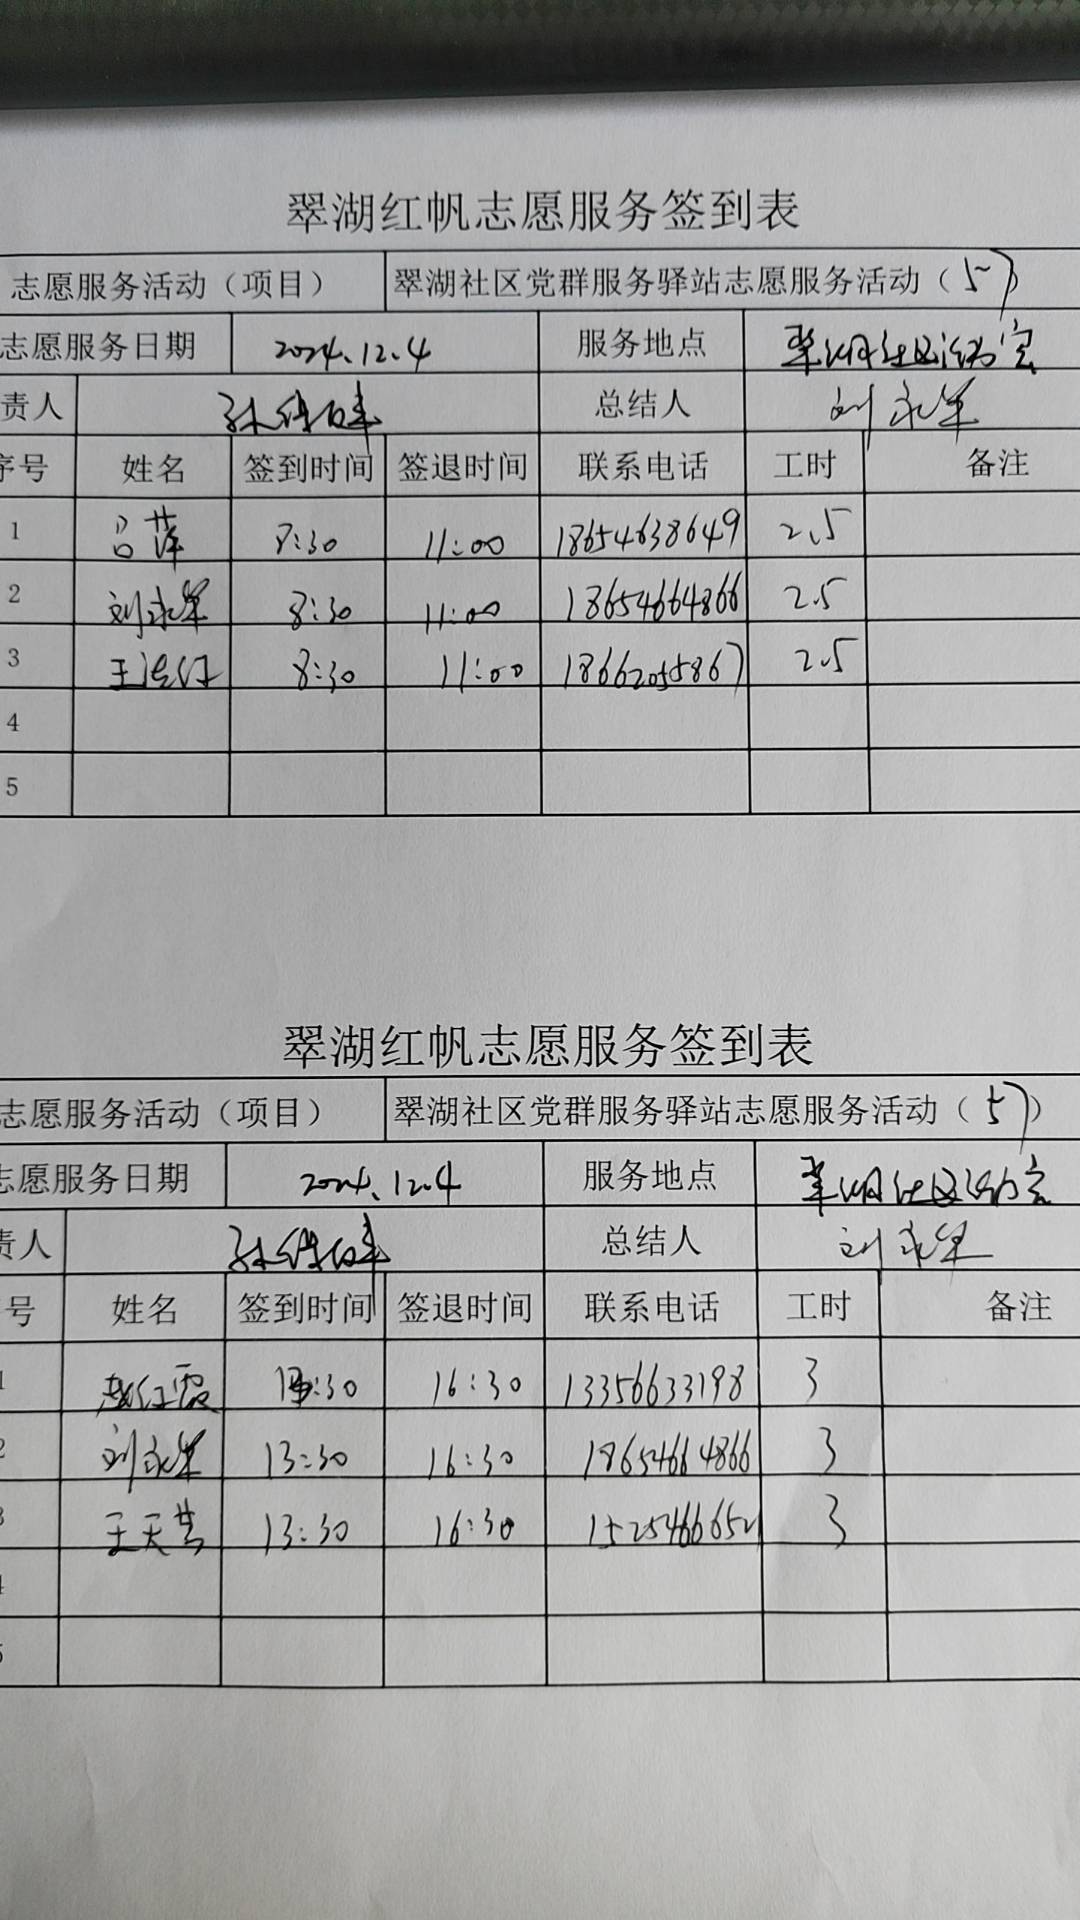 翠湖红帆志愿服务签到表
志愿服务活动（项目） 翠湖社区党群服务驿站志愿服务活动（5）
志愿服务日期 2024.12.4 服务地点 翠湖社区活动室
责人 总结人 刘永军
序号 姓名 签到时间 签退时间 联系电话 工时 备注
1 吕萍 8:30 11:00 18654638649 2.5
2 刘永军 8:30 11:00 18654664866 2.5
3 8:30 11:00 18662055867 2.5
4
5
翠湖红帆志愿服务签到表
志愿服务活动（项目） 翠湖社区党群服务驿站志愿服务活动（5）
志愿服务日期 2024.12.4 服务地点 翠湖社区活动室
责人 总结人 刘永军
号 姓名 签到时间 签退时间 联系电话 工时 备注
1 赵红霞 13:30 16:30 13356633198 3
2 刘永军 13:30 16:30 18654664866 3
3 13:30 16:30 3
4
5